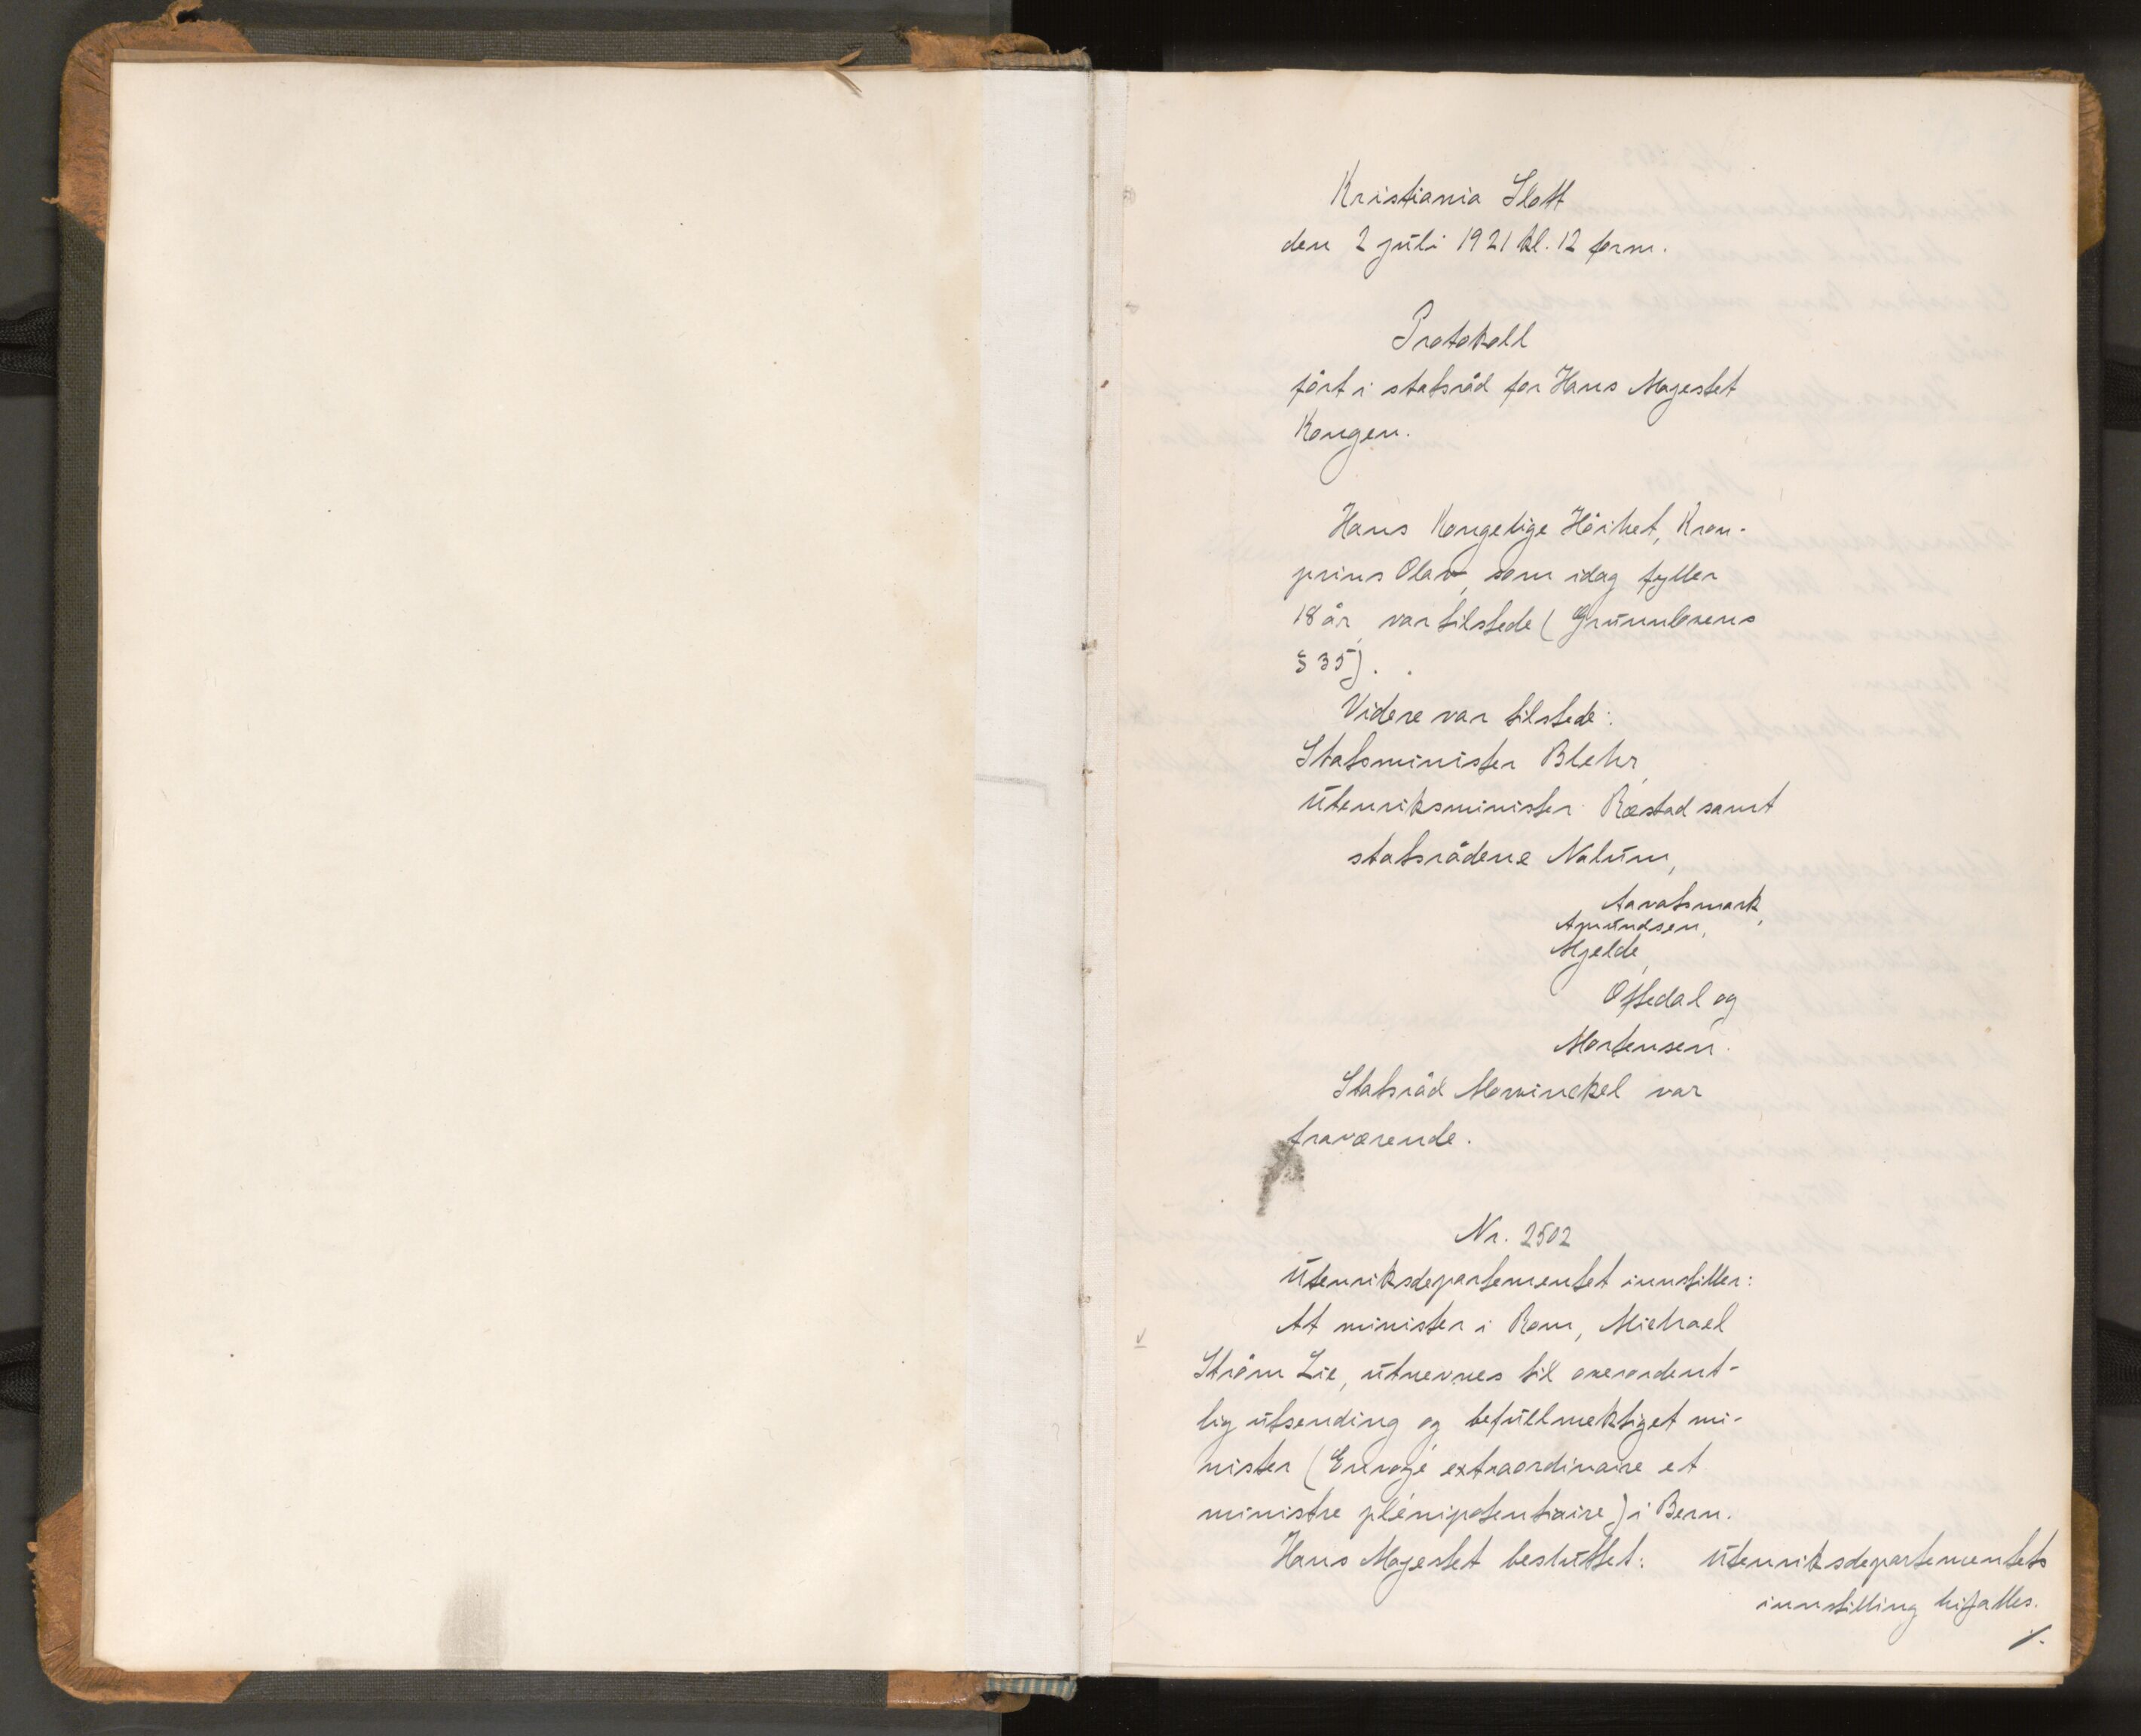 Kristiania Slott
den 2 juli 1921 kl. 12 form.
Protokoll
ført i statsråd for Hans Majestet
Kongen.
Hans Kongelige Høihet, Kron-
prins Olav, som idag fyller
18 år, var tilstede (Grunnlovens
§ 35).
Videre var tilstede:
Statsminister Blehr,
Utenriksminister Ræstad samt
statsrådene Nalum,
Aavatsmark,
Amundsen,
Mjelde,
Oftedal og
Mortensen.
Statsråd Mowinckel var
fraværende.
Nr. 2502
Utenriksdepartementet innstiller:
At minister i Rom, Michael
Strøm Lie, utnevnes til overordent-
lig utsending og befullmektiget mi-
nister (Envoyé extraordinaire et
ministre plénipotentiaire) i Bern.
Hans Majestet besluttet: Utenriksdepartementets
innstilling bifalles.
./.